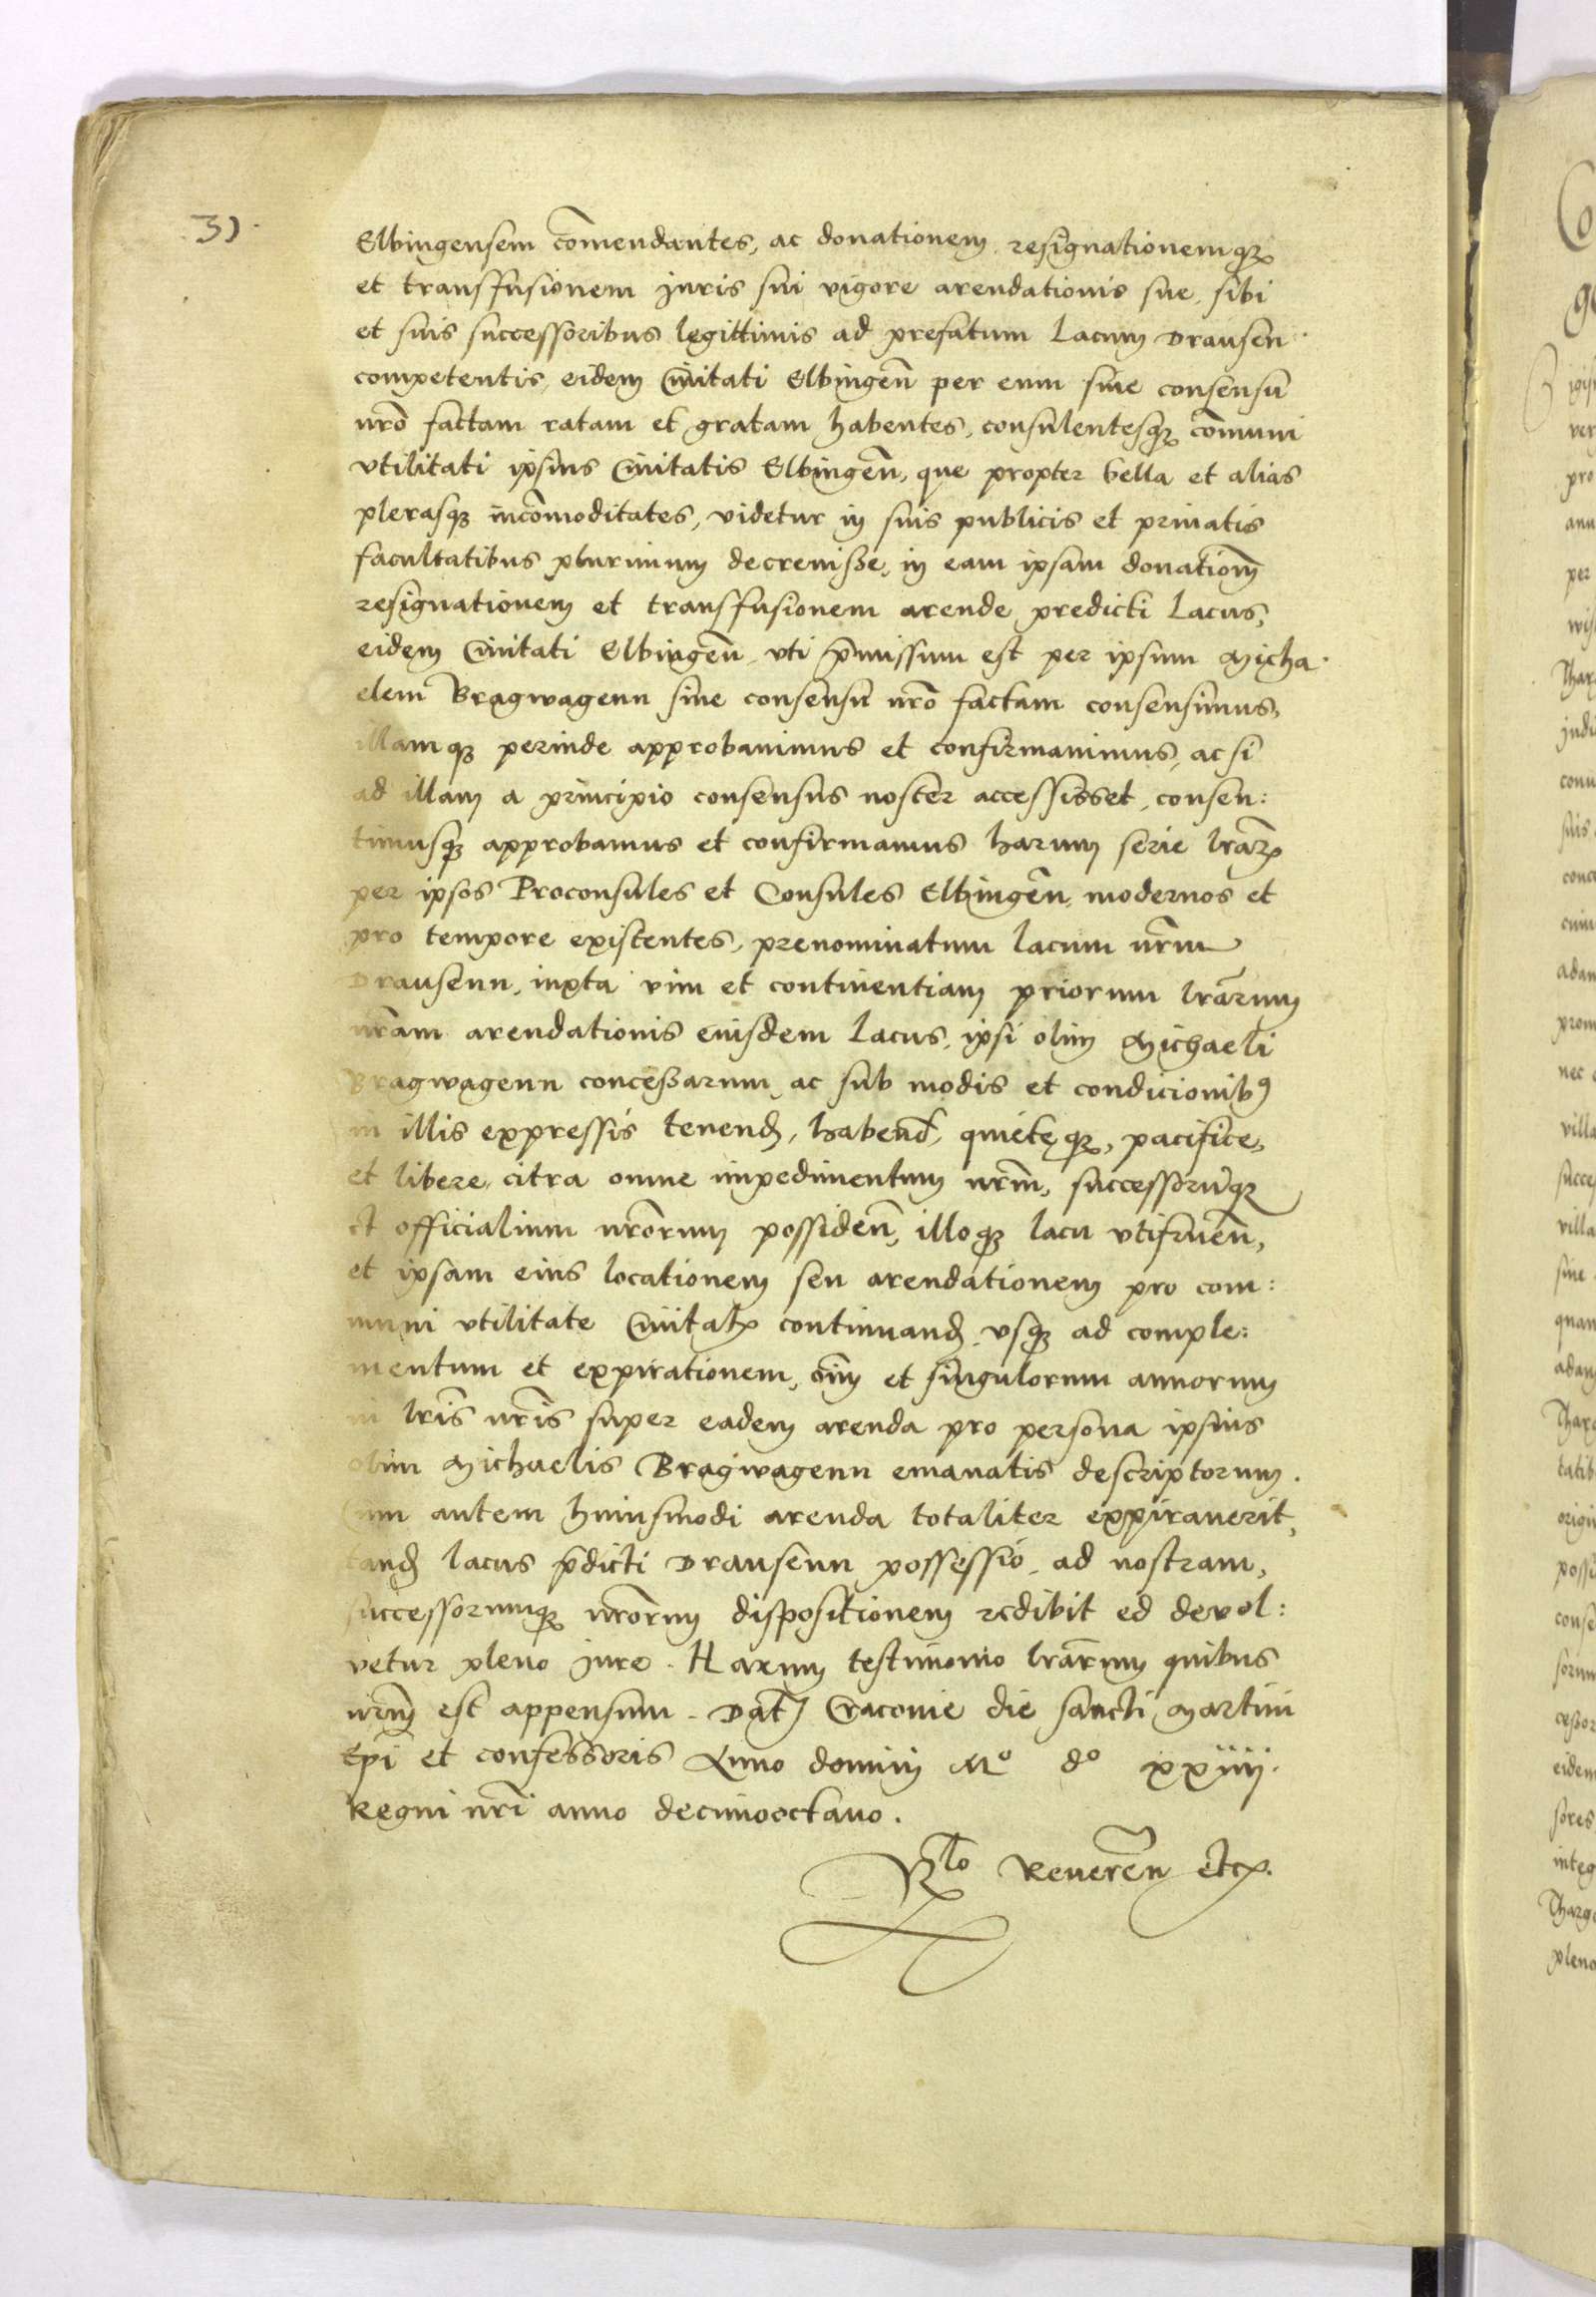 31.
Elbingensem com̄endantes, ac donationem resignationemq₃
et transfusionem Juris sui vigore arendationis sue, sibi
et suis successoribus legittimis ad prefatum Lacum Drausen
competentis, eidem Ciuitati Elbingen̄ per eum sine consensu
nr̄o factam ratam et gratam habentes, consulentesq₃ com̄uni
vtilitati ipsius Ciuitatis Elbingen̄, que propter bella et alias
plerasq₃ incom̄oditates, videtur in suis publicis et priuatis
facultatibus plurimum decreuisse, in eam ipsam donation̄em
resignationem et transfusionem arende predicti Lacus,
eidem Ciuitati Elbingen̄ vti p̄missum est per ipsum Micha
elem Bragwagenn sine consensu nr̄o factam consensimus,
illamq₃ perinde approbauimus et confirmauimus, ac si
ad illam a principio consensus noster accessisset, consen:
timusq₃ approbamus et confirmamus harum serie lr̄aꝝ
per ipsos Proconsules et Consules Elbingen̄ modernos et
pro tempore existentes, prenominatum lacum nr̄um
Drausenn, iuxta vim et continentiam priorum lr̄arum
nr̄arum arendationis eiusdem Lacus, ipsi olim Michaeli
Bragwagenn concessarum, ac sub modis et condicionibꝰ
in illis expressis tenend̄, habend̄, quieteq₃, pacifice,
et libere, citra omne impedimentum nr̄m, successorūq₃
et officialium nr̄orum possiden̄, illoq₃ lacu vtifruen̄,
et ipsam eius locationem seu arendationem pro com:
muni vtilitate Ciuitatꝭ continuand̄ vsq₃ ad comple:
mentum et expirationem, om̄m et singulorum annorum
in lr̄is nr̄is super eadem arenda pro persona ipsius
olim Michaelis Bragwagenn emanatis descriptorum.
Cum autem huiusmodi arenda totaliter expirauerit,
tand̄ lacus p̄dicti Drausenn possessio, ad nostram,
successorumq₃ nr̄orum dispositionem redibit ed deuol:
vetur pleno jure. Harum testimonio lr̄arum quibus
nr̄m est appensum. Dat̄ Cracouie die sancti Martini
Ep̄i et confessoris Anno domini Mº dº xxiiij.
Regni nr̄i anno decimooctauo.
Rlo Reueren̄ etcꝭ.